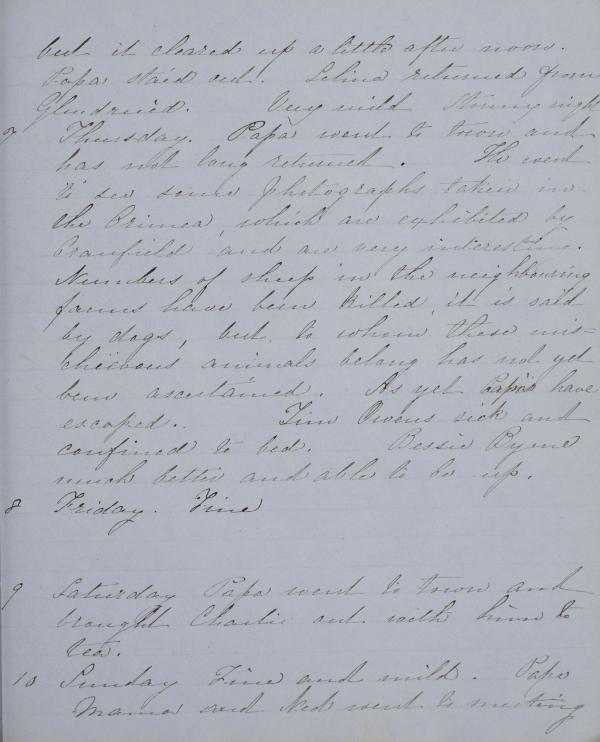 but it cleared up a little after noon.
Papa staid out. Selina returned from
Glendruid. Very mild stormy night
7 Thursday. Papa went to town and
has not long returned. He went
to see some photographs taken in
the Crimea, which are exhibited by
Cranfield and are very interesting.
Numbers of sheep in the neighbouring
farms have been killed, it is said
by dogs, but to whom these mis=
chievous animals belong has not yet
been ascertained. As yet Papa's have
escaped. Tim Owens sick and
confined to bed. Bessie Byrne
much better and able to be up.
8 Friday. Fine
9 Saturday Papa went to town and
brought Charlie out with him to
tea.
10 Sunday Fine and mild. Papa
Mama and Ned went to meeting